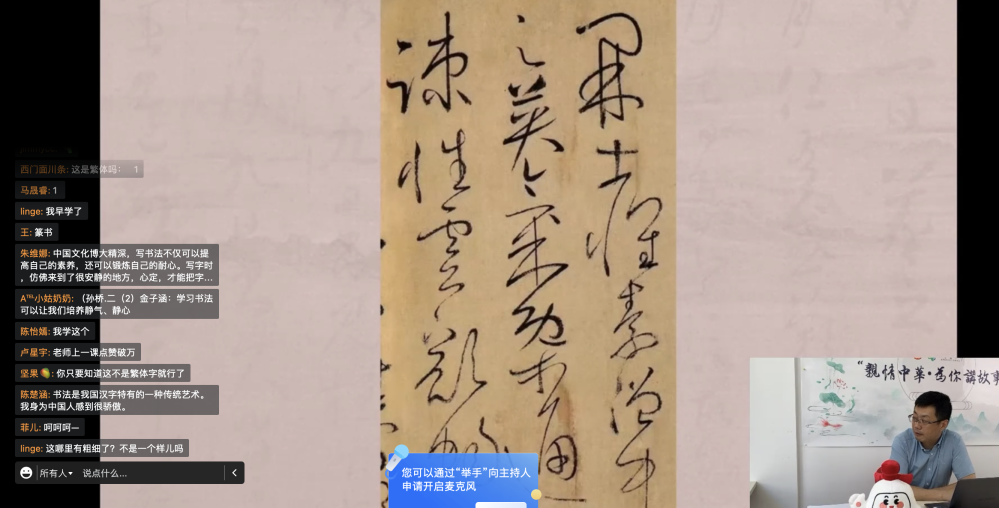 開士懷素僧中
之英氣概通
疎性靈豁
西门面川条: 这是繁体吗： 1
马晟睿: 1
linge: 我早学了
王: 篆书
朱维娜: 中国文化博大精深，写书法不仅可以提
高自己的素养，还可以锻炼自己的耐心。写字时
，仿佛来到了很安静的地方，心定，才能把字...
A™小姑奶奶: （孙桥.二（2）金子涵：学习书法
可以让我们培养静气、静心
陈怡嫣: 我学这个
卢星宇: 老师上一课点赞破万
坚果: 你只要知道这不是繁体字就行了
陈楚涵: 书法是我国汉字特有的一种传统艺术。
我身为中国人感到很骄傲。
菲儿: 呵呵呵一
linge: 这哪里有粗细了？不是一个样儿吗
所有人 说点什么...
您可以通过“举手”向主持人
申请开启麦克风
“親情中華·為你講故事